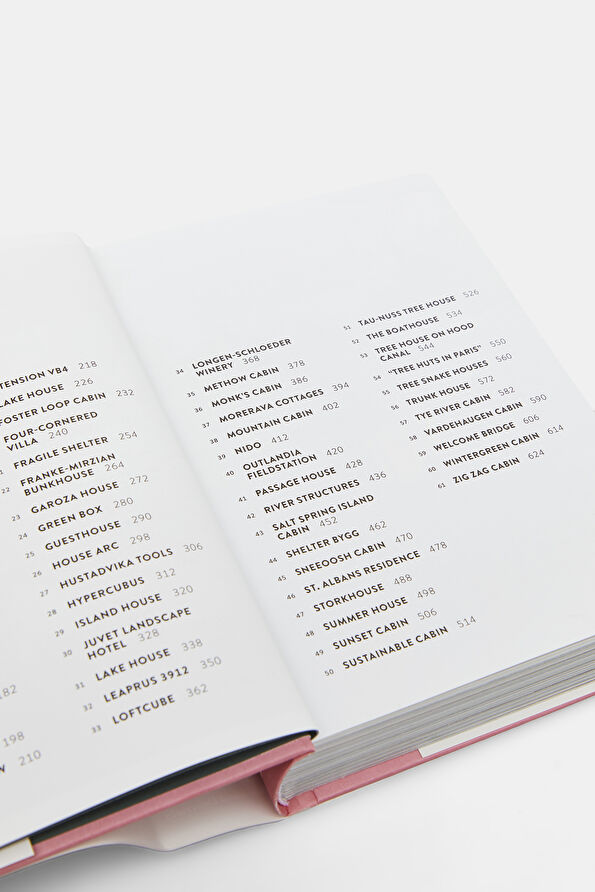 182
198
210
TENSION VB4 218
LAKE HOUSE 226
FOSTER LOOP CABIN 232
FOUR-CORNERED
VILLA 240
FRAGILE SHELTER 254
22 FRANKE-MIRZIAN
BUNKHOUSE 264
23 GAROZA HOUSE 272
24 GREEN BOX 280
25 GUESTHOUSE 290
26 HOUSE ARC 298
27 HUSTADVIKA TOOLS 306
28 HYPERCUBUS 312
29 ISLAND HOUSE 320
30 JUVET LANDSCAPE
HOTEL 328
31 LAKE HOUSE 338
32 LEAPRUS 3912 350
33 LOFTCUBE 362
34 LONGEN-SCHLOEDER
WINERY 368
35 METHOW CABIN 378
36 MONK'S CABIN 386
37 MORERAVA COTTAGES 394
38 MOUNTAIN CABIN 402
39 NIDO 412
40 OUTLANDIA
FIELDSTATION 420
41 PASSAGE HOUSE 428
42 RIVER STRUCTURES 436
43 SALT SPRING ISLAND
CABIN 452
44 SHELTER BYGG 462
45 SNEEOOSH CABIN 470
46 ST. ALBANS RESIDENCE 478
47 STORKHOUSE 488
48 SUMMER HOUSE 498
49 SUNSET CABIN 506
50 SUSTAINABLE CABIN 514
51 TAU-NUSS TREE HOUSE 526
52 THE BOATHOUSE 534
53 TREE HOUSE ON HOOD
CANAL 544
54 "TREE HUTS IN PARIS" 550
55 TREE SNAKE HOUSES 560
56 TRUNK HOUSE 572
57 TYE RIVER CABIN 582
58 VARDEHAUGEN CABIN 590
59 WELCOME BRIDGE 606
60 WINTERGREEN CABIN 614
61 ZIG ZAG CABIN 624